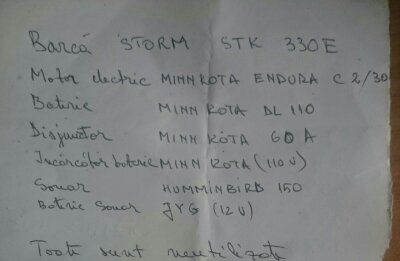 Barcă STORM STK 330E
Motor electric MINN KOTA ENDURA C 2/30
Baterie MINN KOTA DL 110
Disjunctor MINN KOTA 60 A
Incărcător baterie MINN KOTA (110 V)
Sonar HUMMINBIRD 150
Baterie Sonar JYG (12 V)
Toate sunt neutilizate